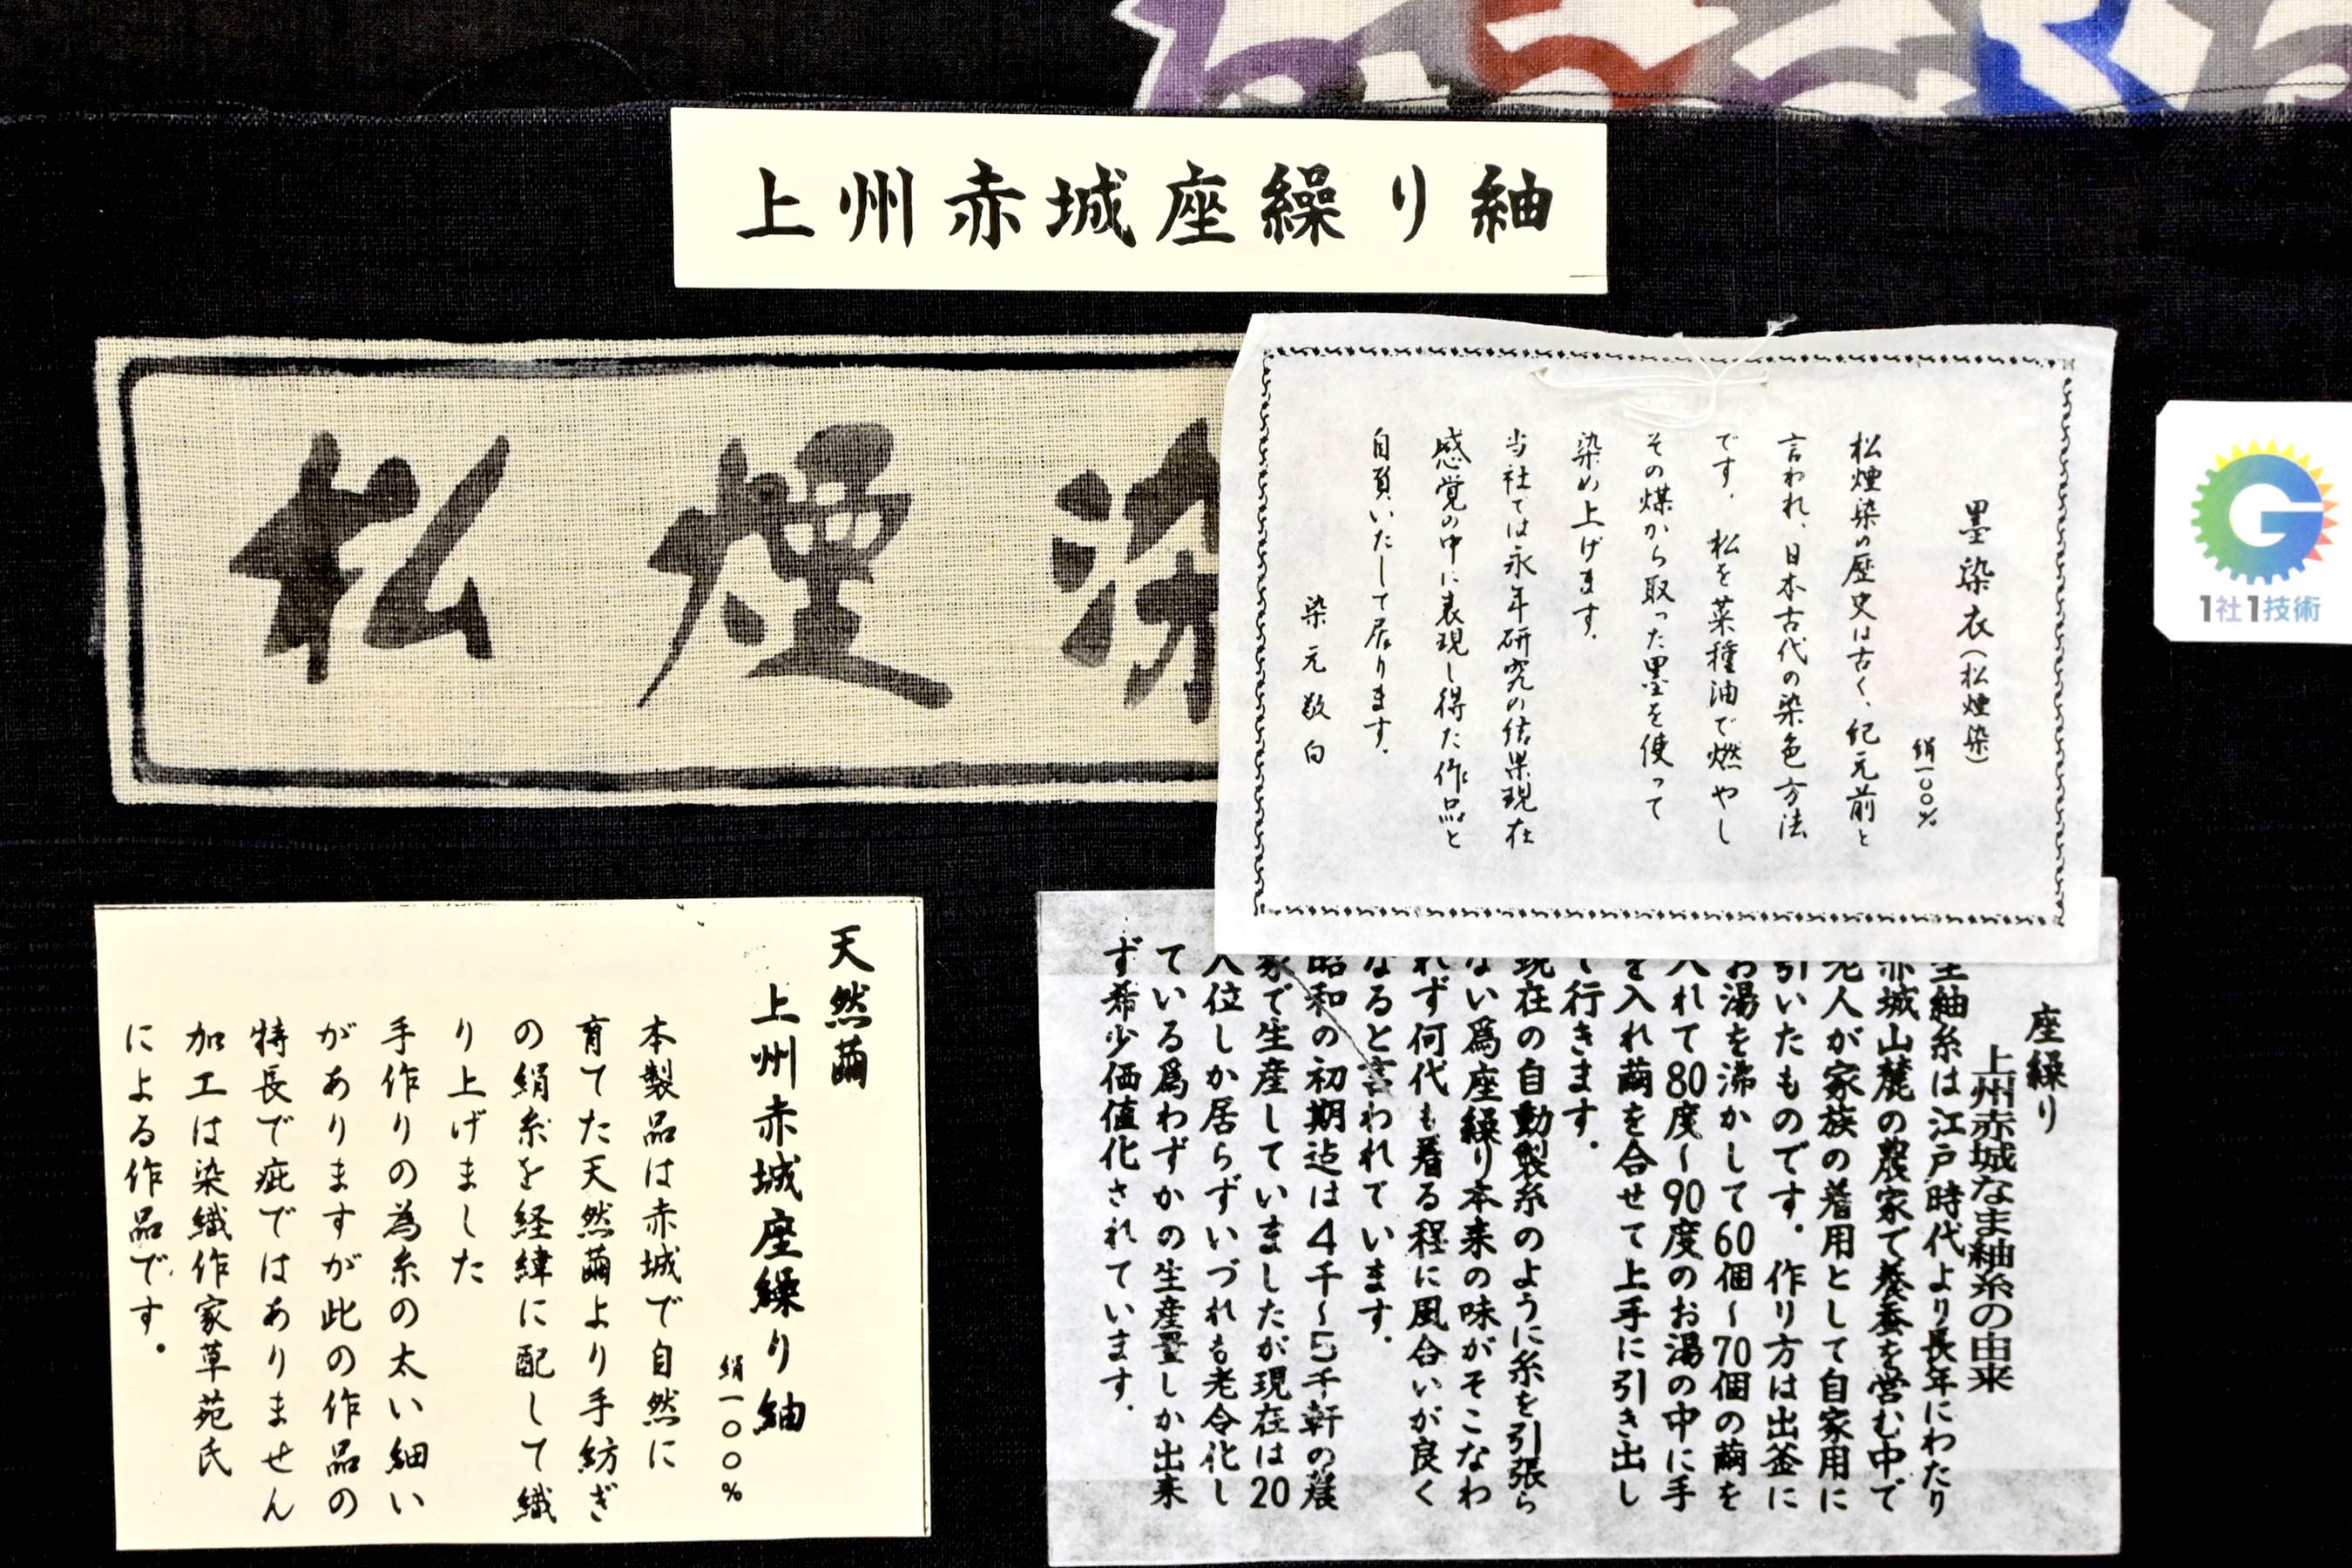 上州赤城座繰り紬
松煙染
墨染衣(松煙染)
絹一〇〇%
松煙染の歴史は古く、紀元前と
言われ、日本古代の染色方法
です。松を菜種油で燃やし
その煤から取った墨を使って
染め上げます。
当社では永年研究の結果現在
感覚の中に表現し得た作品と
自負いたして居ります。
染元敬白
1社1技術
天然繭
上州赤城座繰り紬
絹一〇〇%
本製品は赤城で自然に
育てた天然繭より手紡ぎ
の絹糸を経緯に配して織
り上げました
手作りの為糸の太い細い
がありますが此の作品の
特長で疵ではありません
加工は染織作家草苑氏
による作品です。
座繰り
上州赤城なま紬糸の由来
生紬糸は江戸時代より長年にわたり
赤城山麓の農家で養蚕を営む中で
老人が家族の着用として自家用に
引いたものです。作り方は出釜に
お湯を沸かして60個〜70個の繭を
入れて80度〜90度のお湯の中に手
を入れ繭を合せて上手に引き出し
て行きます。
現在の自動製糸のように糸を引張ら
ない爲座繰り本来の味がそこなわ
れず何代も着る程に風合いが良く
なると言われています。
昭和の初期迠は4千〜5千軒の農
家で生産していましたが現在は20
人位しか居らずいづれも老令化し
ている爲わずかの生産量しか出来
ず希少価値化されています。